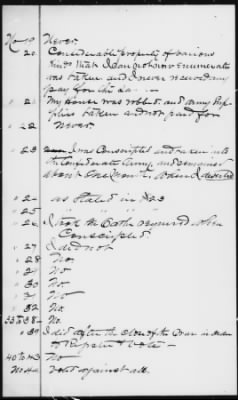 No 19 Never.
20. Considerable property of various
kinds that I can not now enumerate
was taken and I never received any
pay for the same
" 21 My house was robbed and my Sup-
plies taken and not paid for
" 22 Never
" 23 I was conscripted and taken into
the Confederate Army, and remained
about one month, when I deserted
" 24 as stated in No 23
" 25 "
" 26 I took the Oath required when
Conscripted.
" 27 I did not
" 28 No.
" 29 No
" 30 No
" 31 No
" 32 No.
33 to 38 No.
" 39 I did after the close of the War in order
to Register & Vote —
40 to 43 No —
No 44 Voted against all.